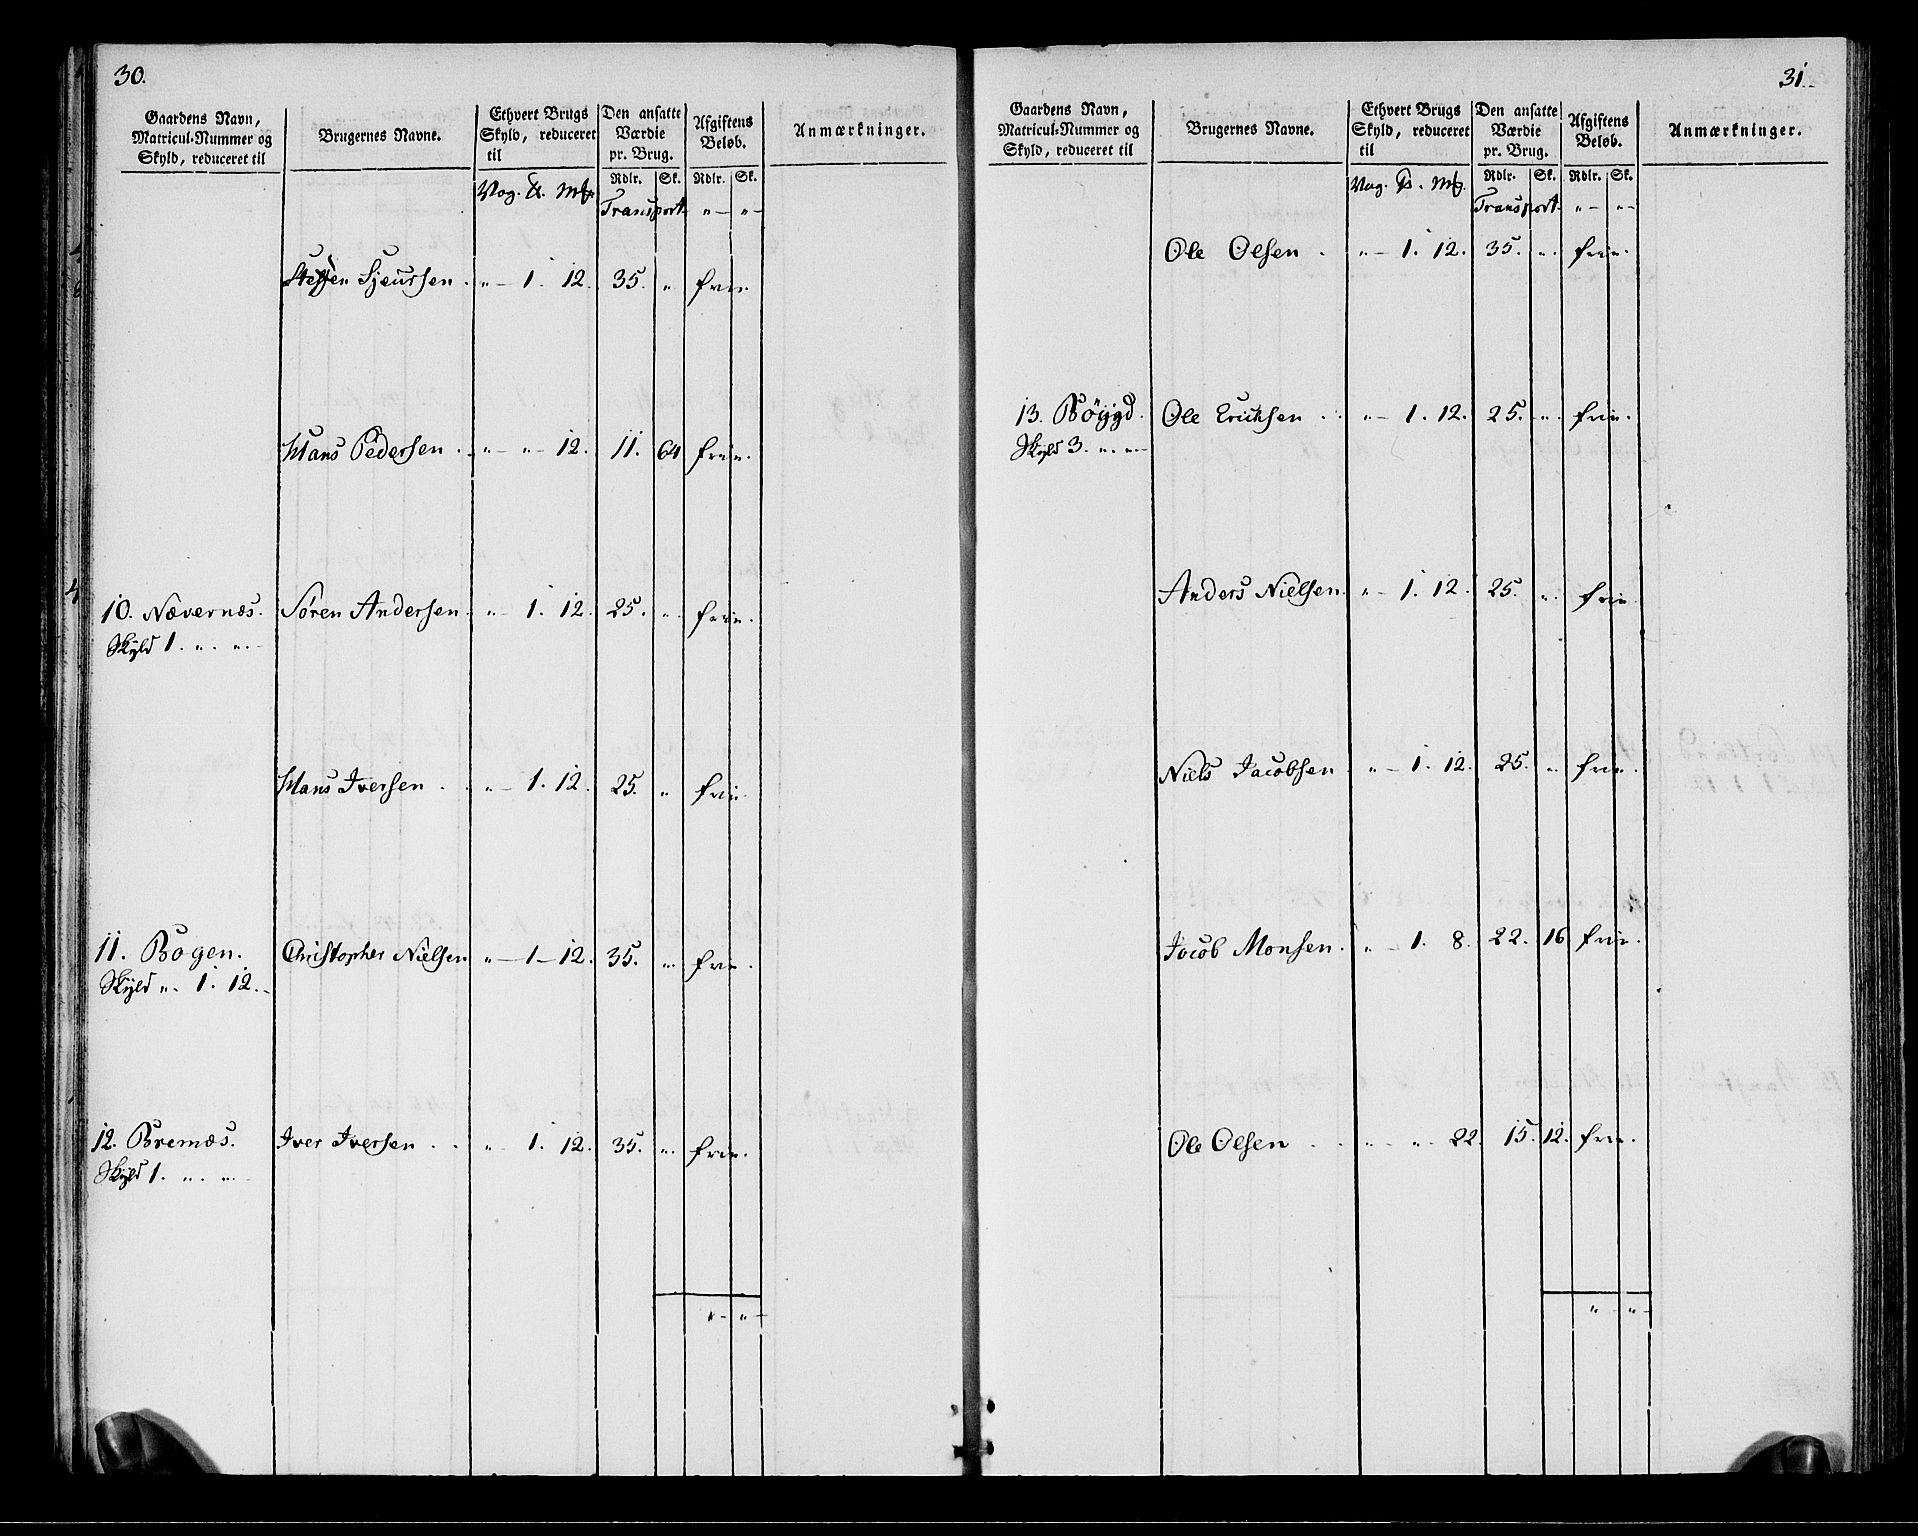 30.
Gaardens Navn, Matricul-Nummer og Skyld, reduceret til
Brugernes Navne.
Ethvert Brugs Skyld, reduceret til
Den ansatte Værdie pr. Brug.
Afgiftens Beløb.
Anmærkninger.
Vog. ℔. mk.
Rdlr. Sk. Rdlr. Sk.
Transport „ — „ —
Sjeursen . „ — 1. 12. 35. „ frie
Hans Pedersen . „ — „ — 12. 11. 64 frie.
10. Nævernæs. Sören Andersen. „ — 1. 12. 25. „. frie.
Skyld 1. „. „. —
Hans Iversen . . „ — 1. 12. 25. „ frie
11. Bogen. Christopher Nielsen „ — 1 — 12. 35. „. frie.
Skyld „. 1. 12. —
12. Bremæs. Iver Iversen . . „ 1. 12. 35. „. frie.
Skyld 1. „. „. —
„ — „ —
31.
Gaardens Navn, Matricul-Nummer og Skyld, reduceret til
Brugernes Navne.
Ethvert Brugs Skyld, reduceret til
Den ansatte Værdie pr. Brug.
Afgiftens Beløb.
Anmærkninger.
Vog. ℔. mk.
Rdlr. Sk. Rdlr. Sk.
Transport „ — „ —
Ole Olsen . „ — 1. 12. 35. „. frie.
13. Böygd. Ole Ericksen . „ — 1. 12. 25. „. frie.
Skyld 3. „. „. —
Anders Nielsen. „ — 1. 12. 25. „. frie
Niels Jacobsen . „ — 1. 12. 25. „ frie.
Jacob Monsen. „ — 1. 8. 22. 16 frie.
Ole Olsen . . „ — „. 22. 15. 12. frie.
„ — „ —